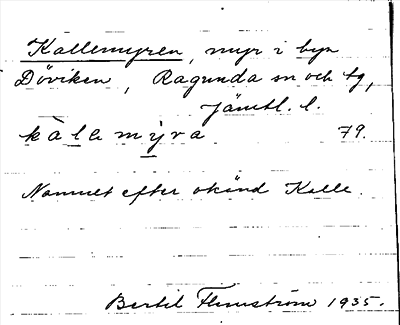 Kallemyren, myr i byn
Döviken, Ragunda sn och tg,
Jämtl. l.
kàlemỳra 79.
Namnet efter okänd Kalle.
Bertil Flemström 1935.